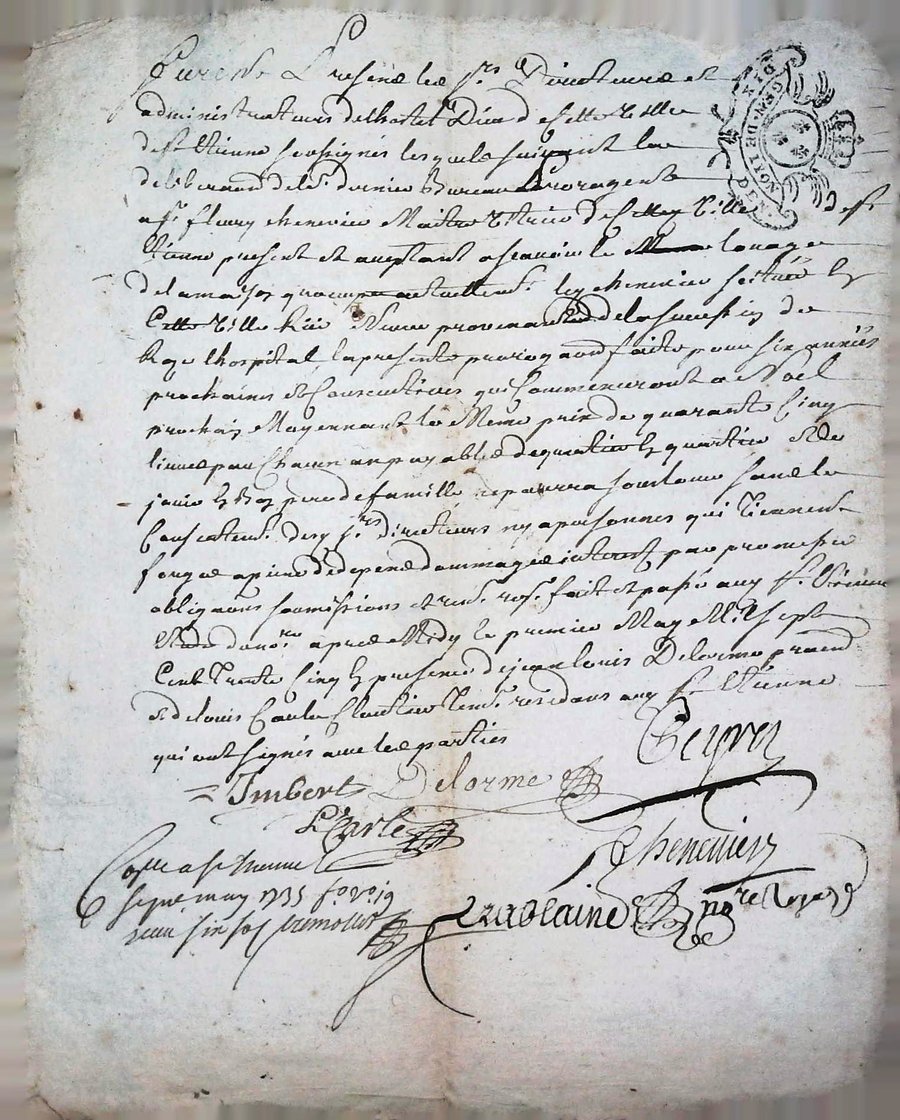 furent Presens les Srs Directeurs et
administrateurs de lhostel Dieu de Cette Ville
de St Etienne soussignés lesquels suivant la
deliberaon de leur dernier Bureau Prorogent
a Sr fleury chenevier Maitre de Cette Ville de St
Etienne present et aceptant a scavoir le louage
de la maison quoccupe actuellemt ledt chenevier scittuée En
Cette Ville Rüe Neuve provenant de la succession de
lhospital la presente prorogaon faite pour six années
prochaines et Consecutives qui Commenceront a Noel
prochain Moyennant le Meme prix de quarante Cinq
livres par Chacun an payable de quartier En quartier et de
jouir En Bon pere de famille ne pourra souslouer sans le
Consentemt desd Srs directeurs ny a personnes qui Tiennent
forge a peine de depens dommages interets par promesses
obligaons soumissions et fait et passé aud St Etienne
apres Midy le premier May Mil sept
Cent Trente Cinq En presence de jean louis Delorme pratn
et de louis Carle Clautrier Temt residans aud St Etienne
qui ont signés avec les parties
Teyter
= Imbert Delorme
L Carle
Chenevier
Con a St Etienne
le sept may 1735 fo vo 19
six sols
no re Royal
DE LION
GEN